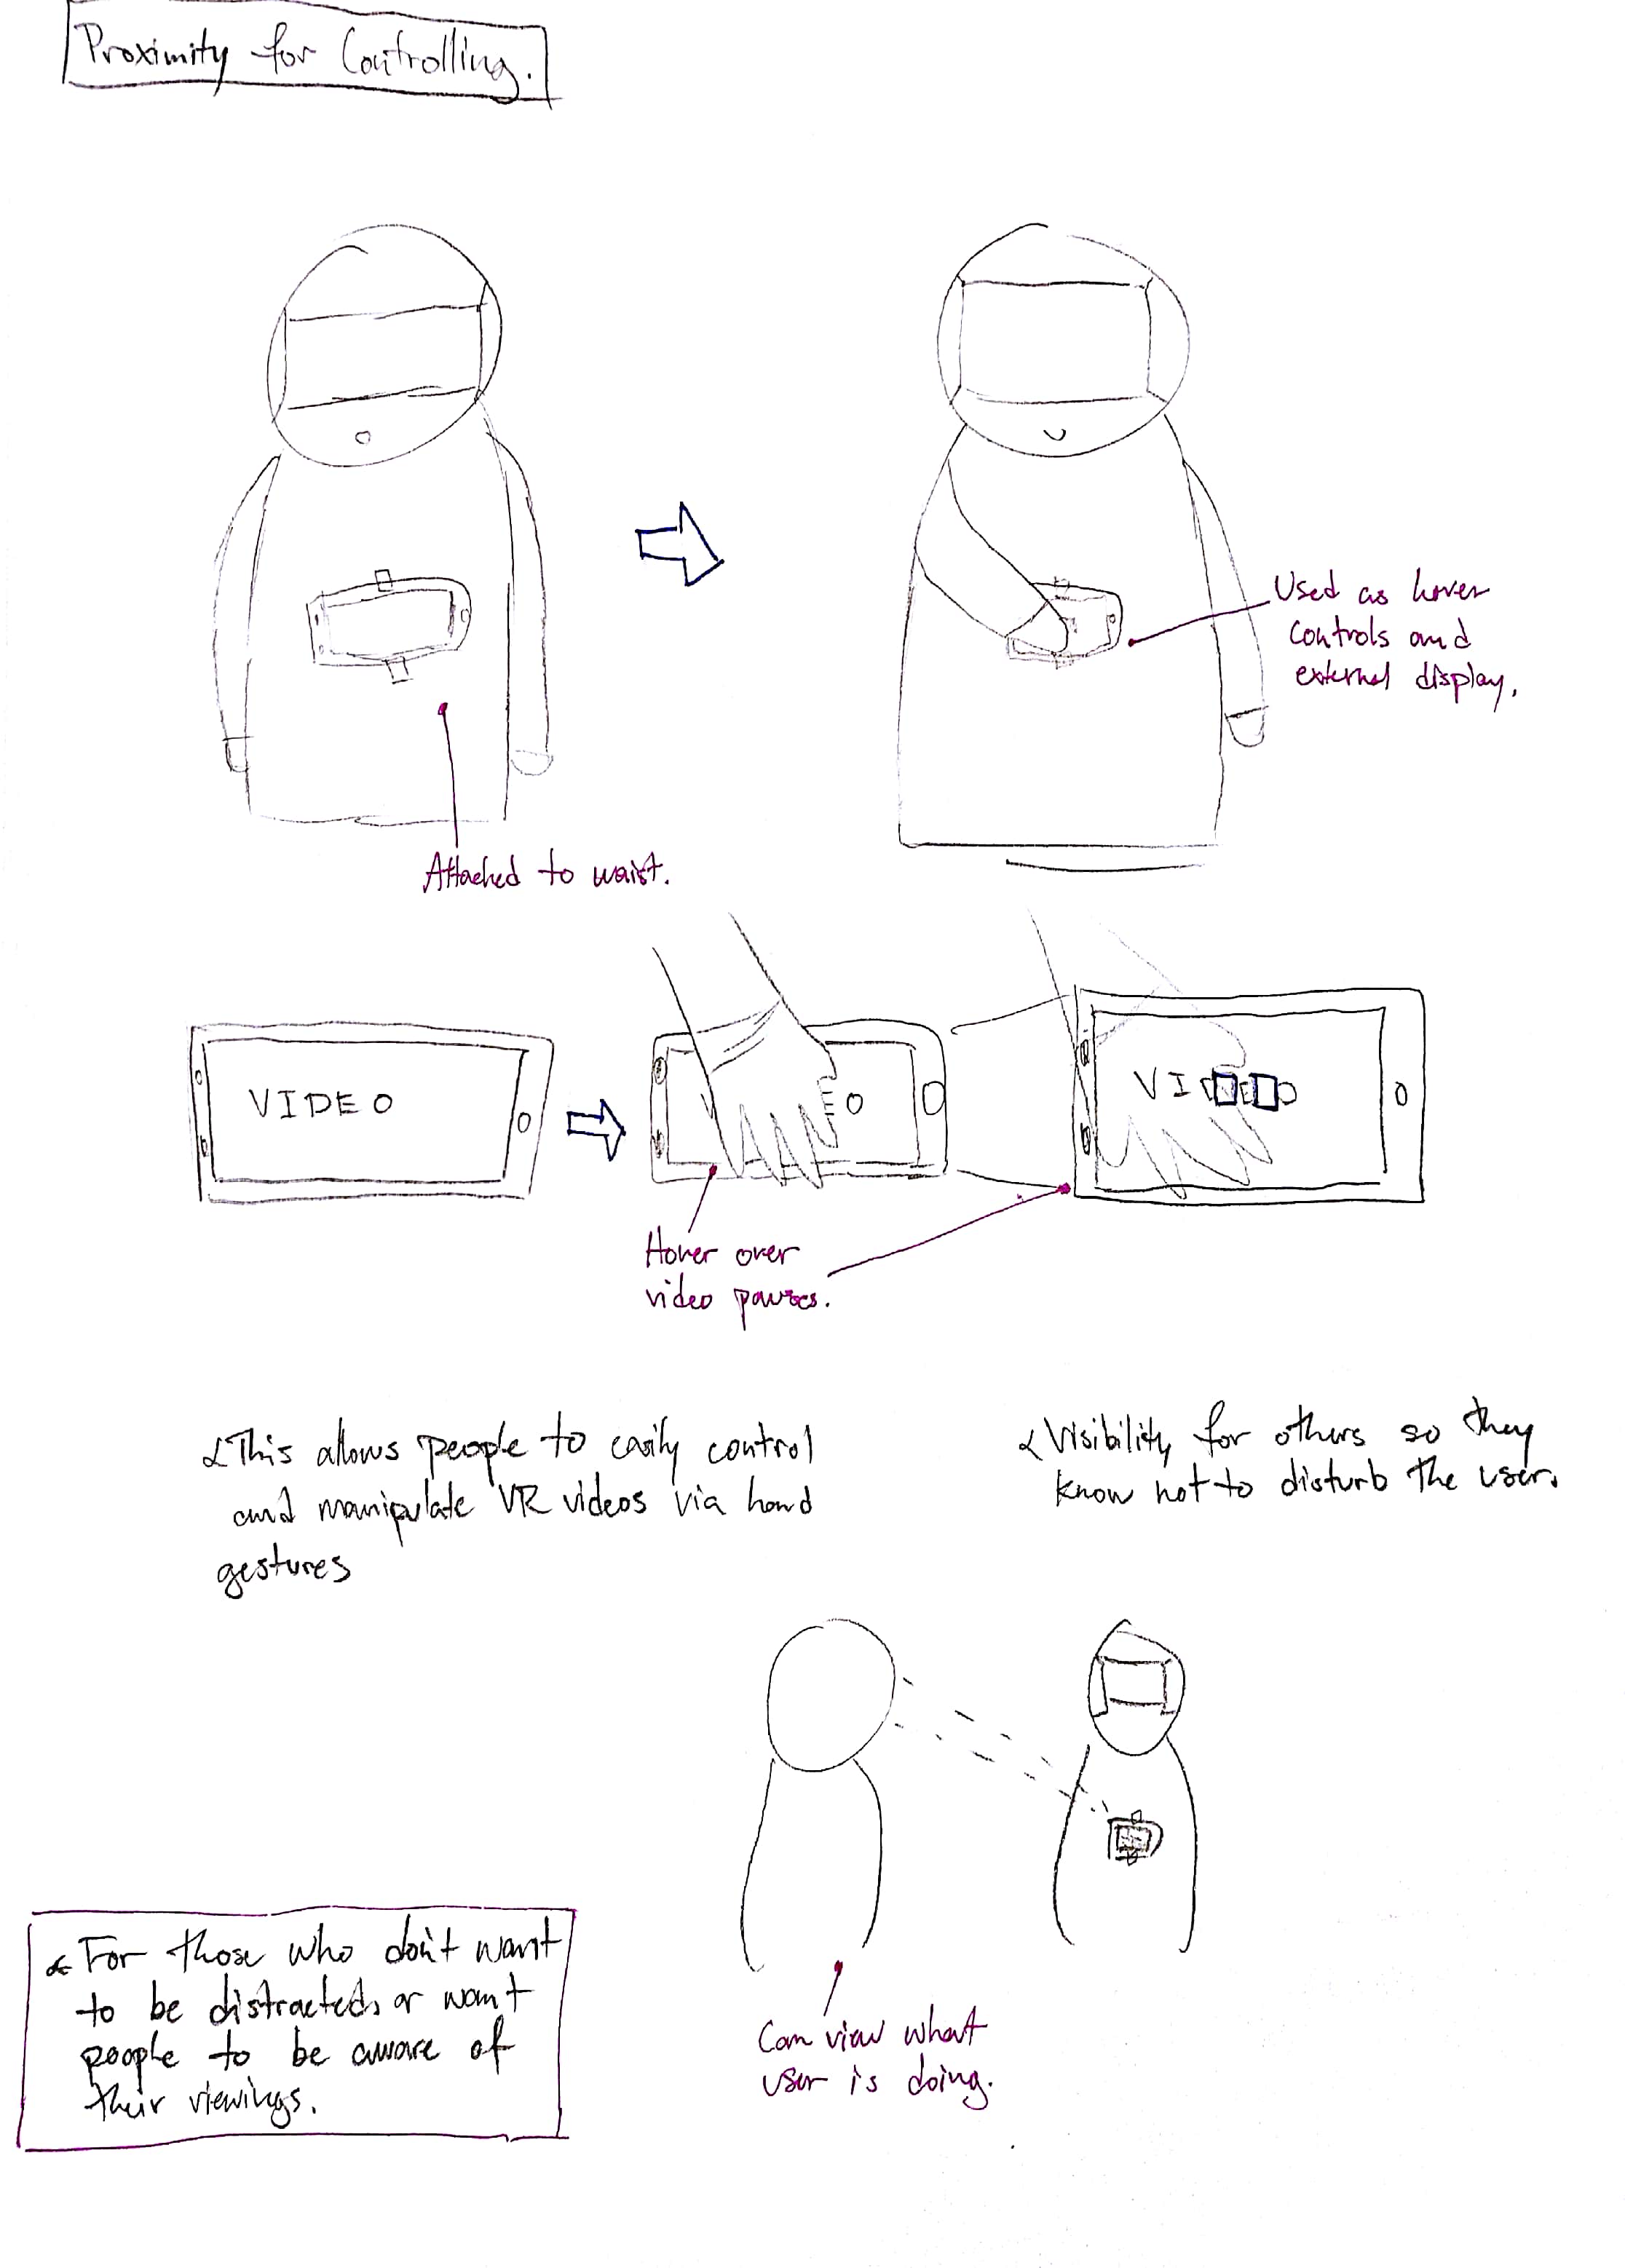 Proximity for Controlling.
Used as hover
controls and
external display.
Attached to waist.
VIDEO
EO
VI
Hover over
video pauses.
This allows people to easily control
and manipulate VR videos via hand
gestures
Visibility for others so they
know not to disturb the user.
For those who don't want
to be distracted, or want
people to be aware of
their viewings.
Can view what
user is doing.